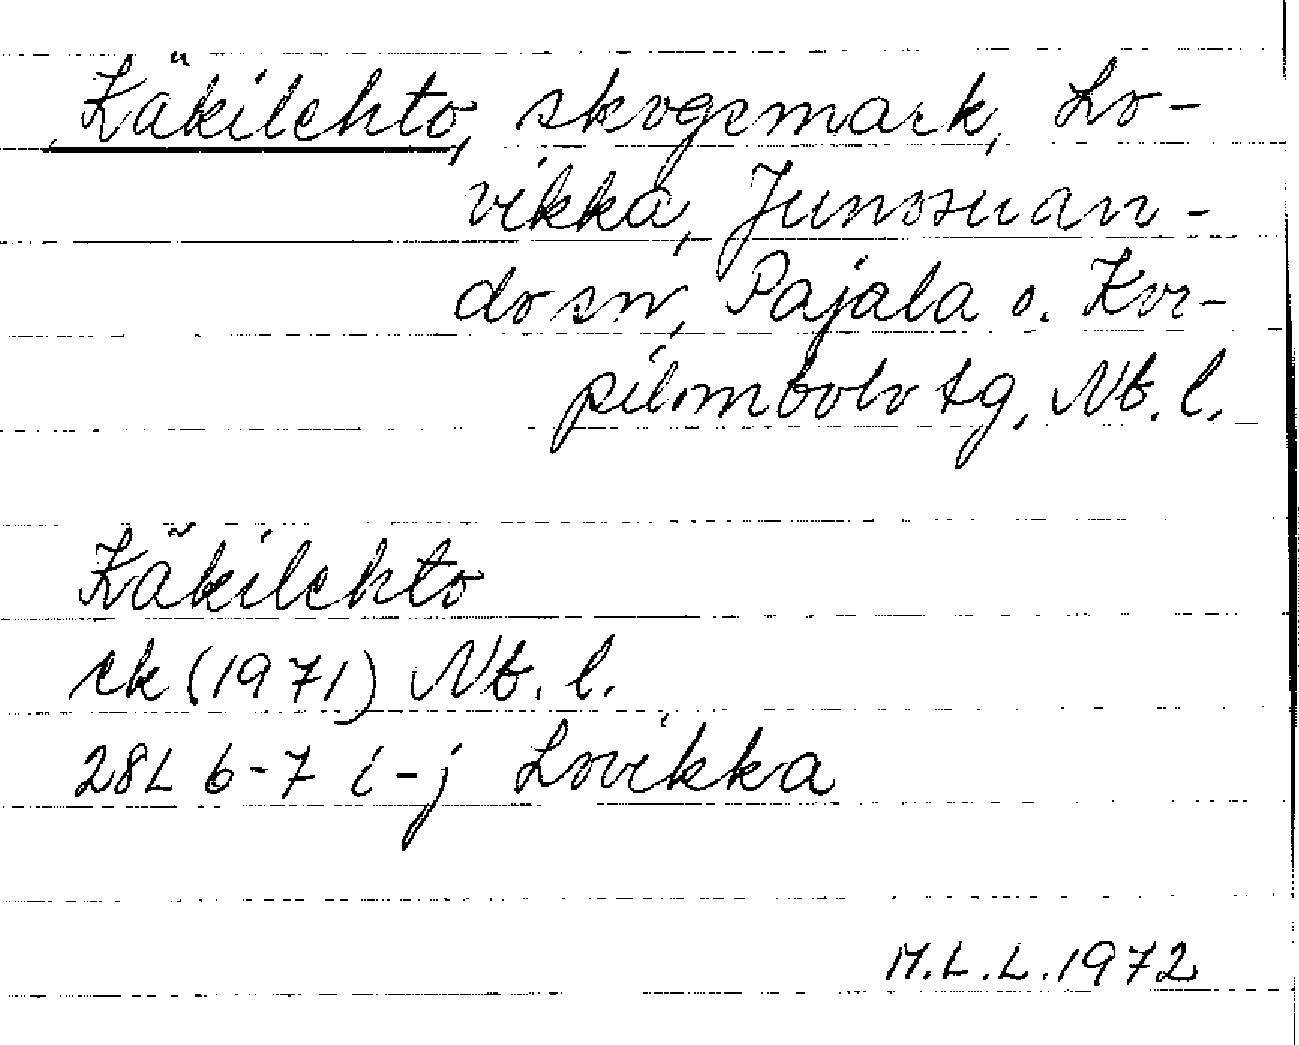 Käkilehto, skogsmark, Lo-
vikka, Junosuan-
do sn, Pajala o. Kor-
pilombolo tg, Nb. l.
Käkilehto
ek (1971) Nb. l.
28L 6-7 i-j Lovikka
M.L.L. 1972